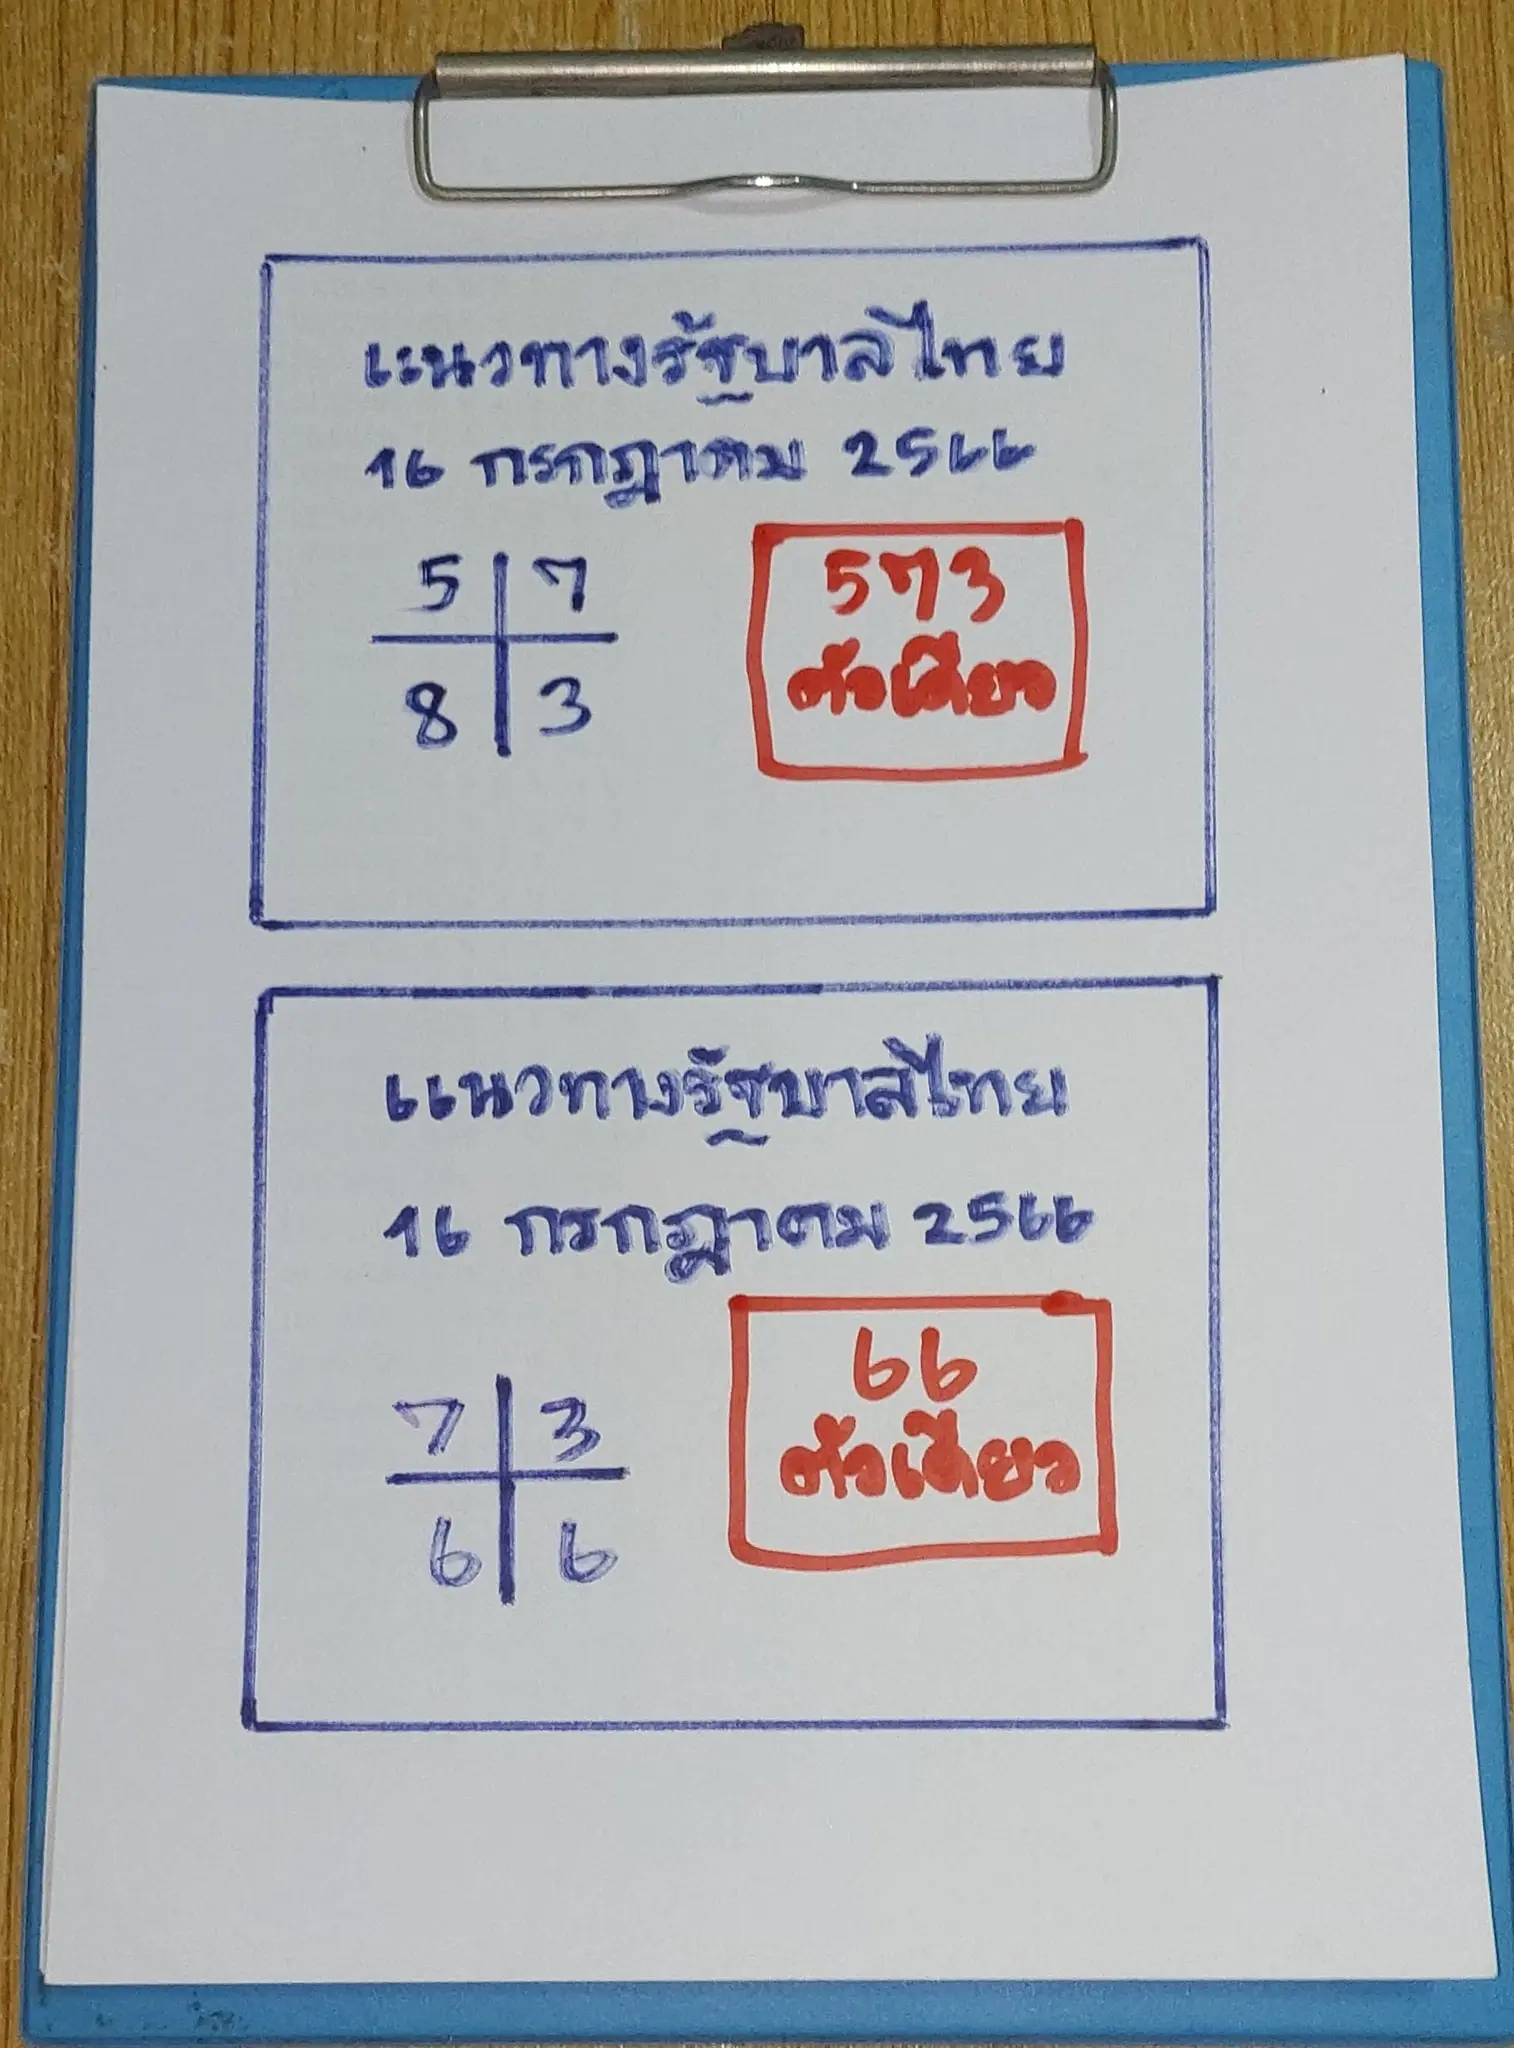 แนวทางรัฐบาลไทย
16 กรกฎาคม 2566
5 7
8 3
573
ตัวเดียว
แนวทางรัฐบาลไทย
16 กรกฎาคม 2566
7 3
6 6
66
ตัวเดียว